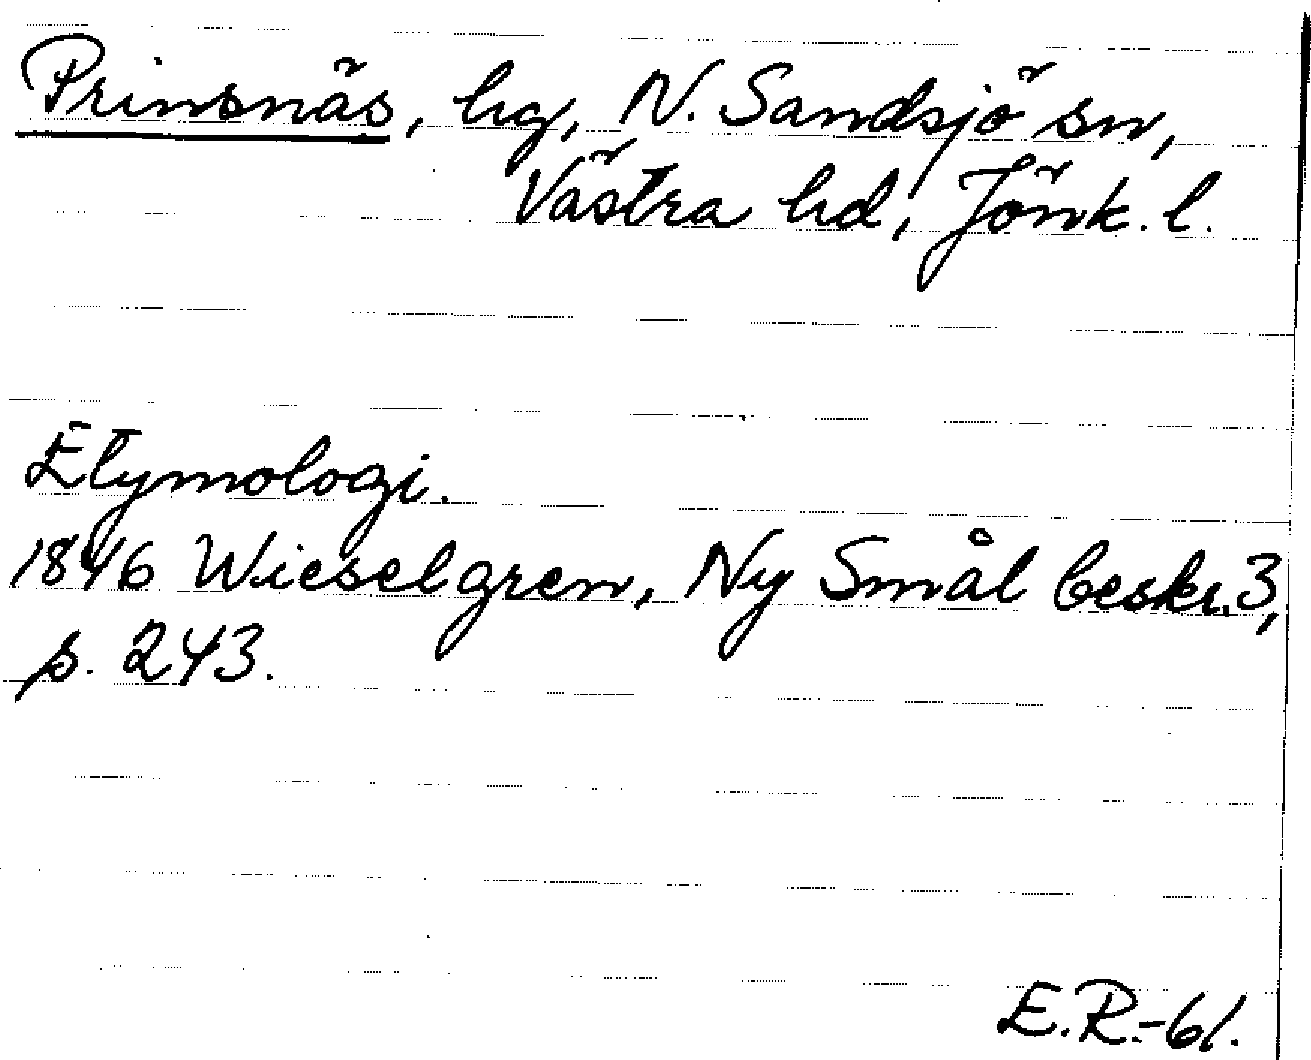 Prinsnäs, hg, N. Sandsjö sn,
Västra hd, Jönk. l.
Etymologi.
1846 Wieselgren, Ny Smål beskr. 3,
p. 243.
E.R.-61.